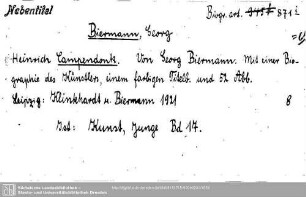 Nebentitel
Biogr. art. 871 i
Biermann, Georg
Heinrich Campendonk. Von Georg Biermann. Mit einer Bio-
graphie des Künstlers, einem farbigen Titelb. und 52 Abb.
Leipzig: Klinkhardt u. Biermann 1921
8
Jg: Kunst, Junge Bd 17.
Sächsische Landesbibliothek -
Staats- und Universitätsbibliothek Dresden